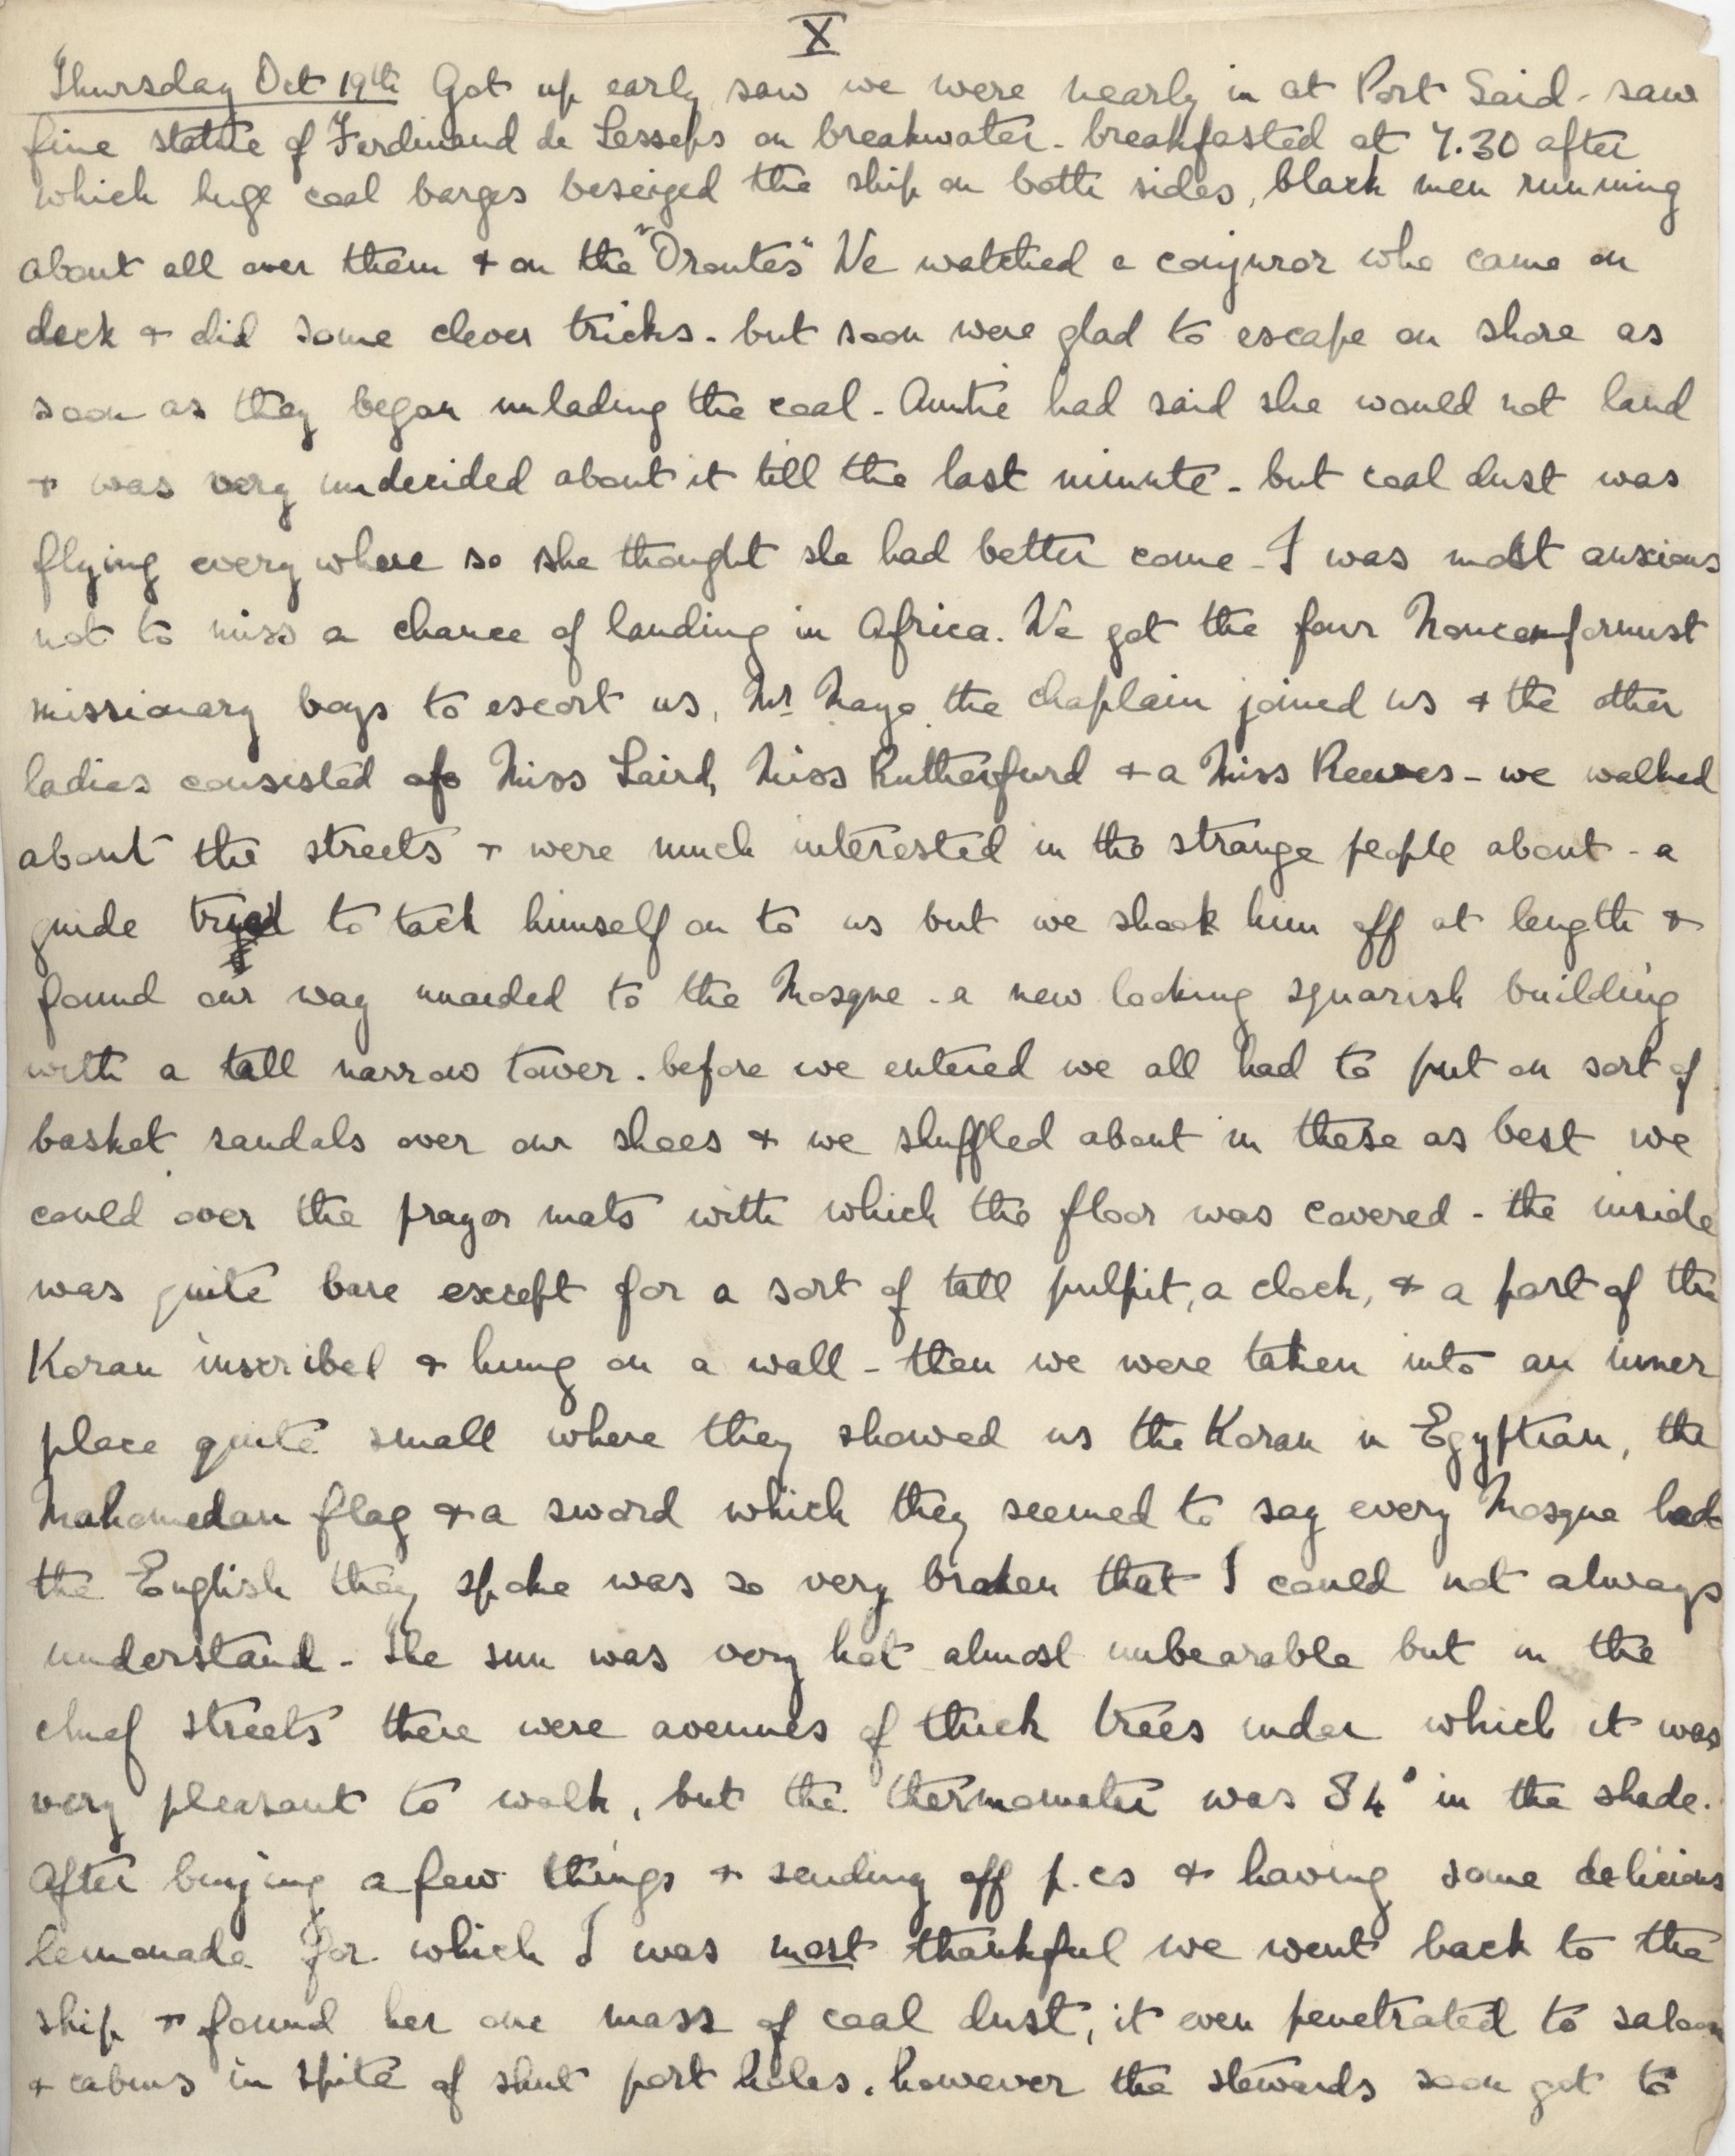 X
Thursday Oct 19th Got up early saw we were nearly in at Port Said - saw
fine statue of Ferdinand de Lesseps on breakwater - breakfasted at 7.30 after
which huge coal barges beseiged the ship on both sides, black men running
about all over them + on the "Orontes" We watched a conjuror who came on
deck + did some clever tricks - but soon were glad to escape on shore as
soon as they began unlading the coal - Auntie had said she would not land
+ was very undecided about it till the last minute - but coal dust was
flying every where so she thought she had better come - I was most anxious
not to miss a chance of landing in Africa. We got the four Nonconformist
missionary boys to escort us, Mr Mayo the chaplain joined us + the other
ladies consisted of Miss Laird, Miss Rutherfurd + a Miss Reeves - we walked
about the streets + were much interested in the strange people about - a
guide tried to tack himself on to us but we shook him off at length +
found our way unaided to the Mosque - a new looking squarish building
with a tall narrow tower - before we entered we all had to put on sort of
basket sandals over our shoes + we shuffled about in these as best we
could over the prayer mats with which the floor was covered - the inside
was quite bare except for a sort of tall pulpit, a clock, + a part of the
Koran inscribed + hung on a wall - then we were taken into an inner
place quite small where they showed us the Koran in Egyptian, the
Mahomedan flag + a sword which they seemed to say every Mosque had
the English they spoke was so very broken that I could not always
understand - The sun was very hot almost unbearable but in the
chief streets there were avenues of thick trees under which it was
very pleasant to walk, but the thermometer was 84° in the shade.
After buying a few things + sending off p.cs + having some delicious
lemonade for which I was most thankful we went back to the
ship + found her one mass of coal dust, it even penetrated to saloon
+ cabins in spite of shut port holes. however the stewards soon got to